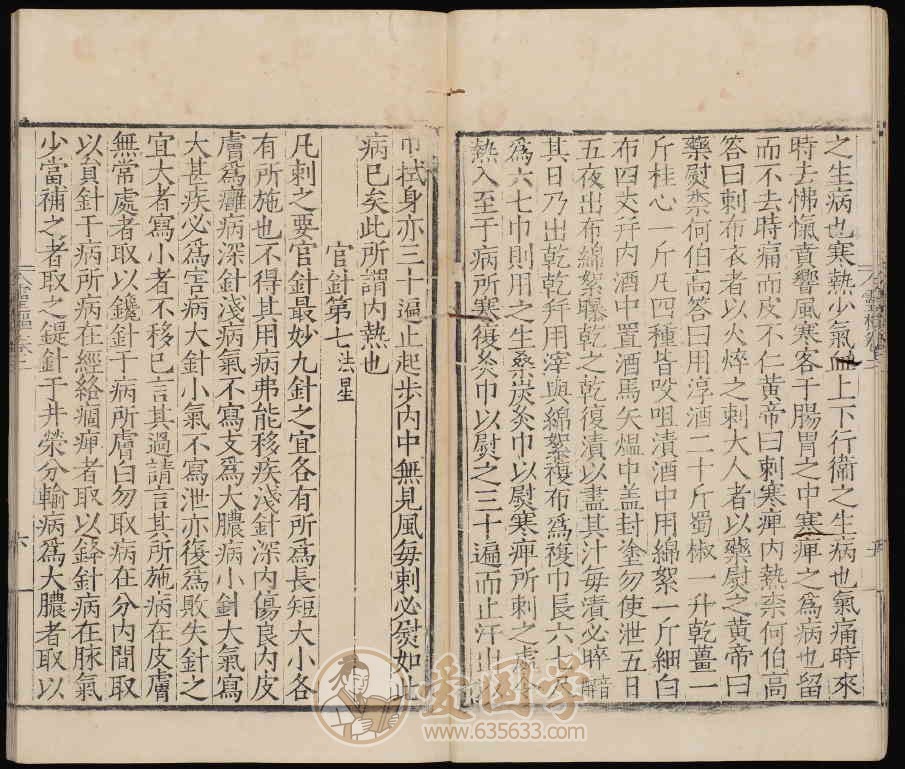 之生病也寒熱少氣血上下行衛之生病也氣痛時來
時去怫愾賁響風寒客于腸胃之中寒痺之為病也留
而不去時痛而皮不仁黃帝曰刺寒痺內熱柰何伯高
答曰刺布衣者以火焠之刺大人者以藥熨之黃帝曰
藥熨柰何伯高答曰用淳酒二十斤蜀椒一升乾薑一
斤桂心一斤凡四種皆㕮咀漬酒中用綿絮一斤細白
布四丈并內酒中置酒馬矢熅中盖封塗勿使泄五日
五夜出布綿絮曝乾之乾復漬以盡其汁每漬必晬暗
其日乃出乾乾并用滓與綿絮複布為複巾長六七尺
為六七巾則用之生桑炭炙巾以熨寒痺所刺之處令
熱入至于病所寒復炙巾以熨之三十遍而止汗出以
巾拭身亦三十遍止起步內中無見風每刺必熨如此
病已矣此所謂內熱也
官針第七法星
凡刺之要官針最妙九針之宜各有所為長短大小各
有所施也不得其用病弗能移疾淺針深內傷良肉皮
膚為癰病深針淺病氣不寫支為大膿病小針大氣寫
大甚疾必為害病大針小氣不寫泄亦復為敗失針之
宜大者寫小者不移已言其過請言其所施病在皮膚
無常處者取以鑱針于病所膚白勿取病在分肉間取
以員針于病所病在經絡痼痺者取以鋒針病在脉氣
少當補之者取之鍉針于井榮分輸病為大膿者取以
六
爱国学
www.635633.com